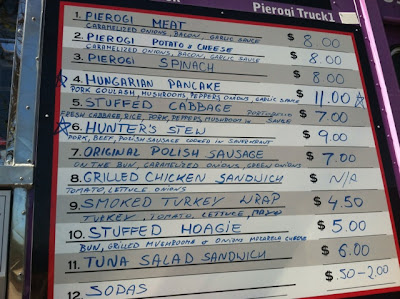 Pierogi Truck1
1. PIEROGI MEAT $ 8.00
CARAMELIZED ONIONS, BACON, GARLIC SAUCE
2. PIEROGI POTATO & CHEESE $ 8.00
CARAMELIZED ONIONS, BACON, GARLIC SAUCE
3. PIEROGI SPINACH $ 8.00
4. HUNGARIAN PANCAKE $ 11.00
PORK GOULASH, MUSHROOMS, PEPPERS ONIONS, GARLIC SAUCE
5. STUFFED CABBAGE $ 7.00
FRESH CABBAGE, RICE, PORK, PEPPERS, MUSHROOM IN SAUCE
6. HUNTER'S STEW $ 9.00
PORK, BEEF, POLISH SAUSAGE COOKED IN SAUERKRAUT
7. ORIGINAL POLISH SAUSAGE $ 7.00
ON THE BUN, CARAMELIZED ONIONS, GREEN ONIONS
8. GRILLED CHICKEN SANDWICH $ N/A
TOMATO, LETTUCE ONIONS
9. SMOKED TURKEY WRAP $ 4.50
TURKEY, TOMATO, LETTUCE, MAYO
10. STUFFED HOAGIE $ 5.00
BUN, GRILLED MUSHROOMS & ONIONS MOZARELA CHEESE
11. TUNA SALAD SANDWICH $ 6.00
12 SODAS $ .50-2.00